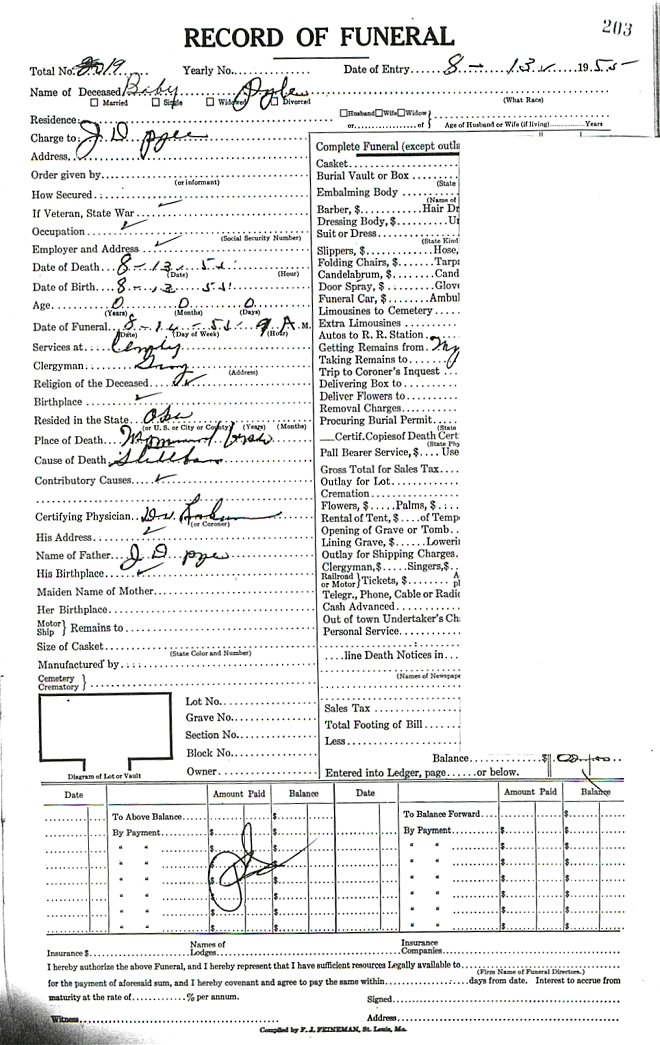 203
RECORD OF FUNERAL
Total No. 2019 Yearly No. Date of Entry 8 - 13 1955
Name of Deceased Baby
Married Single Widowed Divorced (What Race)
Residence: Husband Wife Widow } or of Age of Husband or Wife (if living) Years
Charge to J D
Address
Order given by
(or informant)
How Secured
If Veteran, State War
Occupation
(Social Security Number)
Employer and Address
Date of Death 8 - 13 55
(Date) (Hour)
Date of Birth 8 - 13 55
Age 0 0 0
(Years) (Months) (Days)
Date of Funeral 8 - 14 - 55 - 9 A. M.
(Date) (Day of Week) (Hour)
Services at
Clergyman
(Address)
Religion of the Deceased
Birthplace
Resided in the State Okla
(or U. S. or City or County) (Years) (Months)
Place of Death
Cause of Death Stillborn
Contributory Causes
Certifying Physician Dr
(or Coroner)
His Address
Name of Father J D
His Birthplace
Maiden Name of Mother
Her Birthplace
Motor Ship } Remains to
Size of Casket
(State Color and Number)
Manufactured by
Cemetery Crematory }
Lot No.
Grave No.
Section No.
Block No.
Owner
Diagram of Lot or Vault
Complete Funeral (except outla
Casket
Burial Vault or Box
(State
Embalming Body
(Name of
Barber, $ Hair Dr
Dressing Body, $ Un
Suit or Dress
(State Kind
Slippers, $ Hose,
Folding Chairs, $ Tarp
Candelabrum, $ Cand
Door Spray, $ Glov
Funeral Car, $ Ambul
Limousines to Cemetery
Extra Limousines
Autos to R. R. Station
Getting Remains from
Taking Remains to
Trip to Coroner's Inquest
Delivering Box to
Deliver Flowers to
Removal Charges
Procuring Burial Permit
(State
Certif. Copies of Death Cert
(State Ph
Pall Bearer Service, $ Use
Gross Total for Sales Tax
Outlay for Lot
Cremation
Flowers, $ Palms, $
Rental of Tent, $ of Temp
Opening of Grave or Tomb
Lining Grave, $ Loweri
Outlay for Shipping Charges
Clergyman, $ Singers, $
Railroad or Motor } Tickets, $
Telegr., Phone, Cable or Radio
Cash Advanced
Out of town Undertaker's Ch
Personal Service
line Death Notices in
(Names of Newspape
Sales Tax
Total Footing of Bill
Less
Balance $
Entered into Ledger, page or below.
Date Amount Paid Balance Date Amount Paid Balance
To Above Balance $ To Balance Forward $
By Payment $ $ By Payment $ $
" " $ $ " " $ $
" " $ $ " " $ $
" " $ $ " " $ $
" " $ $ " " $ $
" " $ $ " " $ $
" " $ $ " " $ $
Insurance $ Names of Lodges Insurance Companies
I hereby authorize the above Funeral, and I hereby represent that I have sufficient resources Legally available to
(Firm Name of Funeral Directors.)
for the payment of aforesaid sum, and I hereby covenant and agree to pay the same within days from date. Interest to accrue from
maturity at the rate of % per annum. Signed
Witness Address
Compiled by F. J. FEINEMAN, St. Louis, Mo.